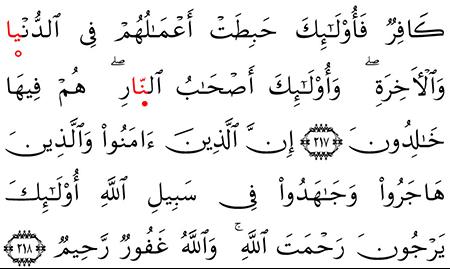 كَافِرٌ فَأُو۟لَـٰٓئِكَ حَبِطَتْ أَعْمَـٰلُهُمْ فِى ٱلدُّنْيَا
وَٱلْـَٔاخِرَةِ ۖ وَأُو۟لَـٰٓئِكَ أَصْحَـٰبُ ٱلنَّارِ ۖ هُمْ فِيهَا
خَـٰلِدُونَ ٢١٧ إِنَّ ٱلَّذِينَ ءَامَنُوا۟ وَٱلَّذِينَ
هَاجَرُوا۟ وَجَـٰهَدُوا۟ فِى سَبِيلِ ٱللَّهِ أُو۟لَـٰٓئِكَ
يَرْجُونَ رَحْمَتَ ٱللَّهِ ۚ وَٱللَّهُ غَفُورٌ رَّحِيمٌ ٢١٨